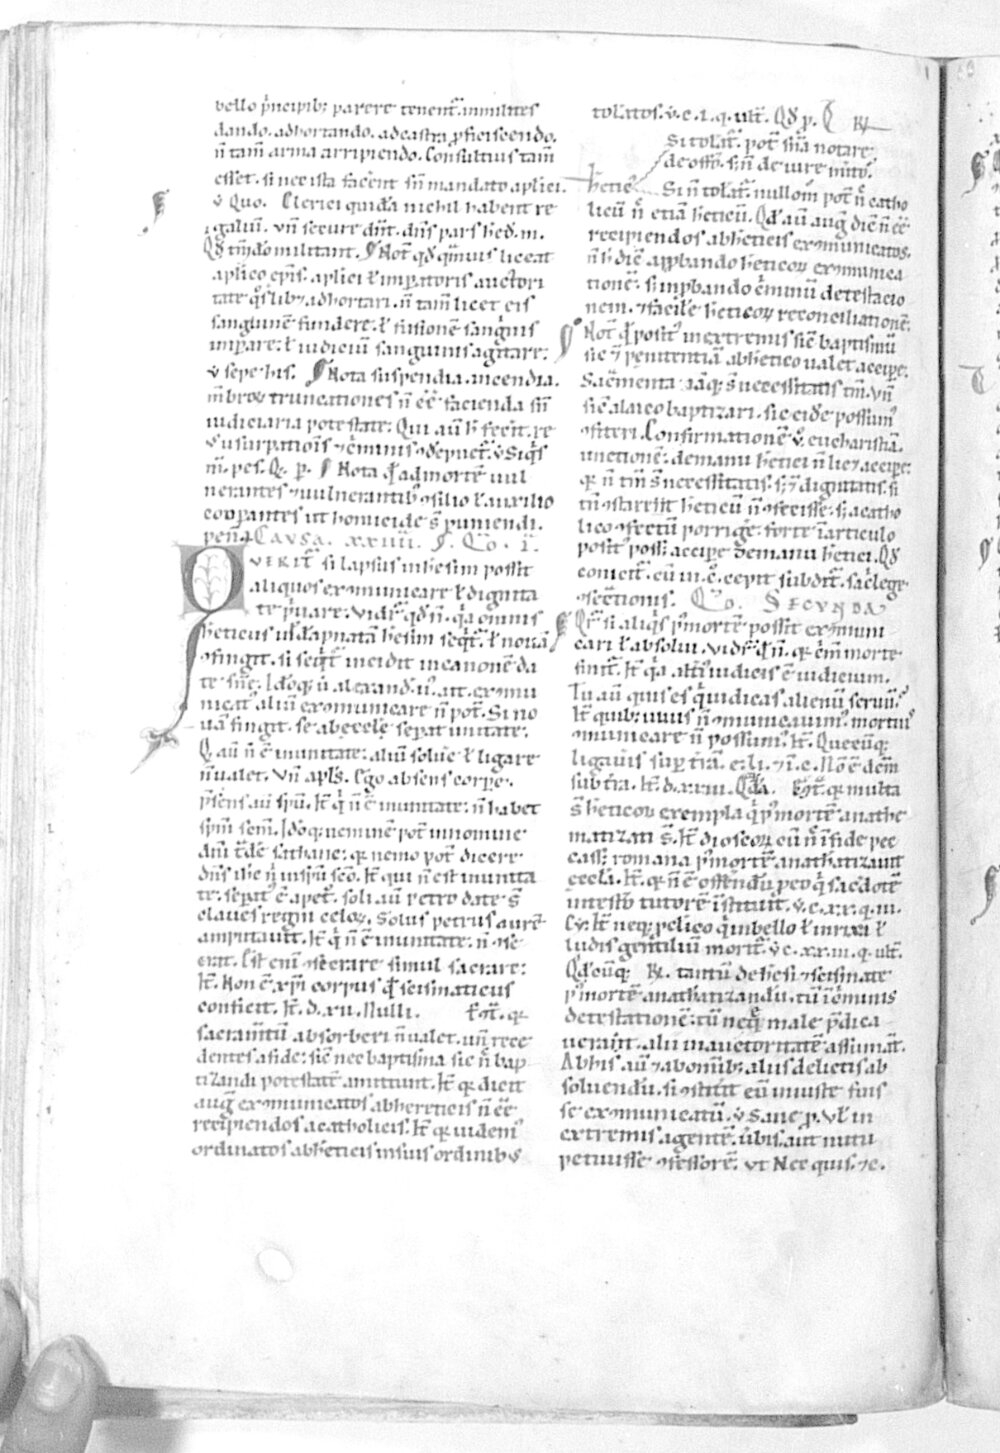 bello p̄ncipib; parere tenent̄. inmilites
dando. adhortando. adcastra ꝓficiscendo.
n̄ tam̄ arma arripiendo. Consultius tam̄
esset. si nec ista facer̄ent sin̄ mandato aplici.
v Quo. Clerici quida nichil habent re
galiū. vn̄ secure dn̄t. dn̄s pars hed. m.
militant. Not̄ qd qm̄uis liceat
aplico epis. aplici ł imp̄atoris auctori
tate q̄slib; adhortari. n̄ tam̄ licet eis
sanguinē fundere. ł fusionē sanguīs
imp̄are: ł iudiciū sanguinis agitare:
v sepe his. Nota suspendia. incendia.
m̄broꝝ truncationes n̄ eē facienda sin̄
iudiciaria potestate: Qui aū h̄ fecit. re
v usurpatiōis
m̄. pes. Q. p. Nota qd admortē uul
nerantes uulnerantib; ɔsilio ł auxilio
coopantes ut homicide s̄ puniendi.
pen̄a CAVSA. XXIIII. Q̄o. I.
QVERIT̄ si lapsus inhesim possit
aliquos exɔmunicare ł dignita
te p̄uare. vidr̄ qd n̄. q̄a omnis
hereticus heresim seq̄t̄. ł nouā
ɔfingit. si seq̄t̄ incidit incanonē da
te sn̄e. Idoq; alexandr̄. ait. exɔmu
nicat̄ aliū exɔmunicare n̄ pot̄. Si no
uā fingit. se ab ecclē separat unitate.
Q aū n̄ ē inunitate: aliū soluē ł ligare
n̄ ualet. Vn̄ apls. Ego absens corpore.
p̄sens aū spū. It̄ q̄ n̄ ē inunitate: n̄ habet
spm̄ scm̄. Idoq; neminē pot̄ innomine
dn̄i t̄dē sathane: qr nemo pot̄ dicere
dn̄s ihc n̄ inspū sco. It̄ qui n̄ est inunita
te: separat̄ ē a pet̄. soli aū petro date s̄
claues regni celoꝝ. Solus petrus aurē
amputauit. It̄ q̄ n̄ ē inunitate: n̄ ɔse
crat. Est eni ɔsecrare simul sacrare:
It̄. Non ē xp̄i corpus qd scismaticus
conficit. It̄. d. xii. Nulli. Eḡt̄. qr
sacram̄tū absorberi n̄ ualet. un̄ rece
dentes afide: sic̄ nec baptisma sic n̄ bap
tizandi potestatē amittunt. It̄ qr dicit
auḡ exɔmunicatos abhereticis n̄ eē
recipiendos acatholicis. It̄ qr uidem̄
ordinatos abhereticis insuis ordinib;
tolatos. v. c. i. q. ult̄. Qd p. R
Si tolat̄. pot̄ sn̄ia notare
de offo. s; n̄ de iure
heretic̄ Si n̄ tolat̄. nullom̄ pot̄ n̄ catho
licū n̄ etiā hereticū. Qd aū auḡ dic̄ n̄ eē
recipiendos abhereticis exɔmunicatos.
n̄ h̄ dic̄ app̄bando hereticoꝝ exɔmunica
tionē: s; inp̄bando c̄minū detestacio
nem. facilē hereticoꝝ reconciliationē.
Not̄ qd posit̄ inextremis sic̄ baptismū
sic penitentiā abheretico ualet accipe.
Sacm̄enta s̄ necessitatis tm̄. vn̄
sic̄ alaico baptizari. sic eidē possum̄
ɔfiteri. Confirmationē v̄. eucharistiā.
unctionē: demanu heretici n̄ licz accipe:
qr n̄ tm̄ s̄ necessitatis. s; dignitatis. si
tn̄ ɔstaresit hereticū n̄ ɔfecisse: s; acatho
lico ɔfectū porrigē: forte in articulo
posit̄ poss; accipe demanu heretici. Qd
comeit̄. eū m̄. c̄. cepit subdit̄. sac̄lege
ɔsecc̄tionis. Q̄o. SECVNDA
Qr̄ si aliq̄s p̄mortē possit exɔmuni
cari ł absolui. vidr̄ qd n̄. qr c̄m̄ morte
finit̄. It̄ q̄a alt̄i iudicis ē iudicium.
Tu aū quis es q̄ iudicas alienū seruū.
It̄ quib; uiuis n̄ ɔmunicauim̄. mortuis
ɔmunicare n̄ possum̄. It̄. Quecūq;
ligauis sup̄ tr̄ā. c. li. Nō ē dcm̄
subtra. It̄. d. xxiii. Q̄da. Eḡt̄. qr multa
s̄ hereticoꝝ exempla q̄ p̄ mortē anathe
matizati s̄. It̄ dioscoꝝ eū n̄ infide pec
casse romana p̄ mortē anathatizauit
eccl̄a. It̄. qr n̄ ē offendū pro eo q̄ sacdotē
intesto tutorē instituit. v. c. xx. q. iii.
Cy. It̄ neq; pelico q̄ inbello ł inrixa ł
ludis gentiliū morit̄. v. c. xx. iii. q. ult̄.
Qdcūq; R. tantū deheresi scismate
p̄ mortē anathatizandū. tū ic̄minis
detestationē: tū neq̄ male p̄dica
uerant. alii inauctoritatē assumāt.
Abhis. aū abomīb; aliis delictis ab
soluendū. si ɔstitit eū iniuste fuis
se exɔmunicatū. v Sane p. Vł in
extremis agentē. ūbis. aut nutu
petiuisse ɔfessorē. vt Nec quis. c.